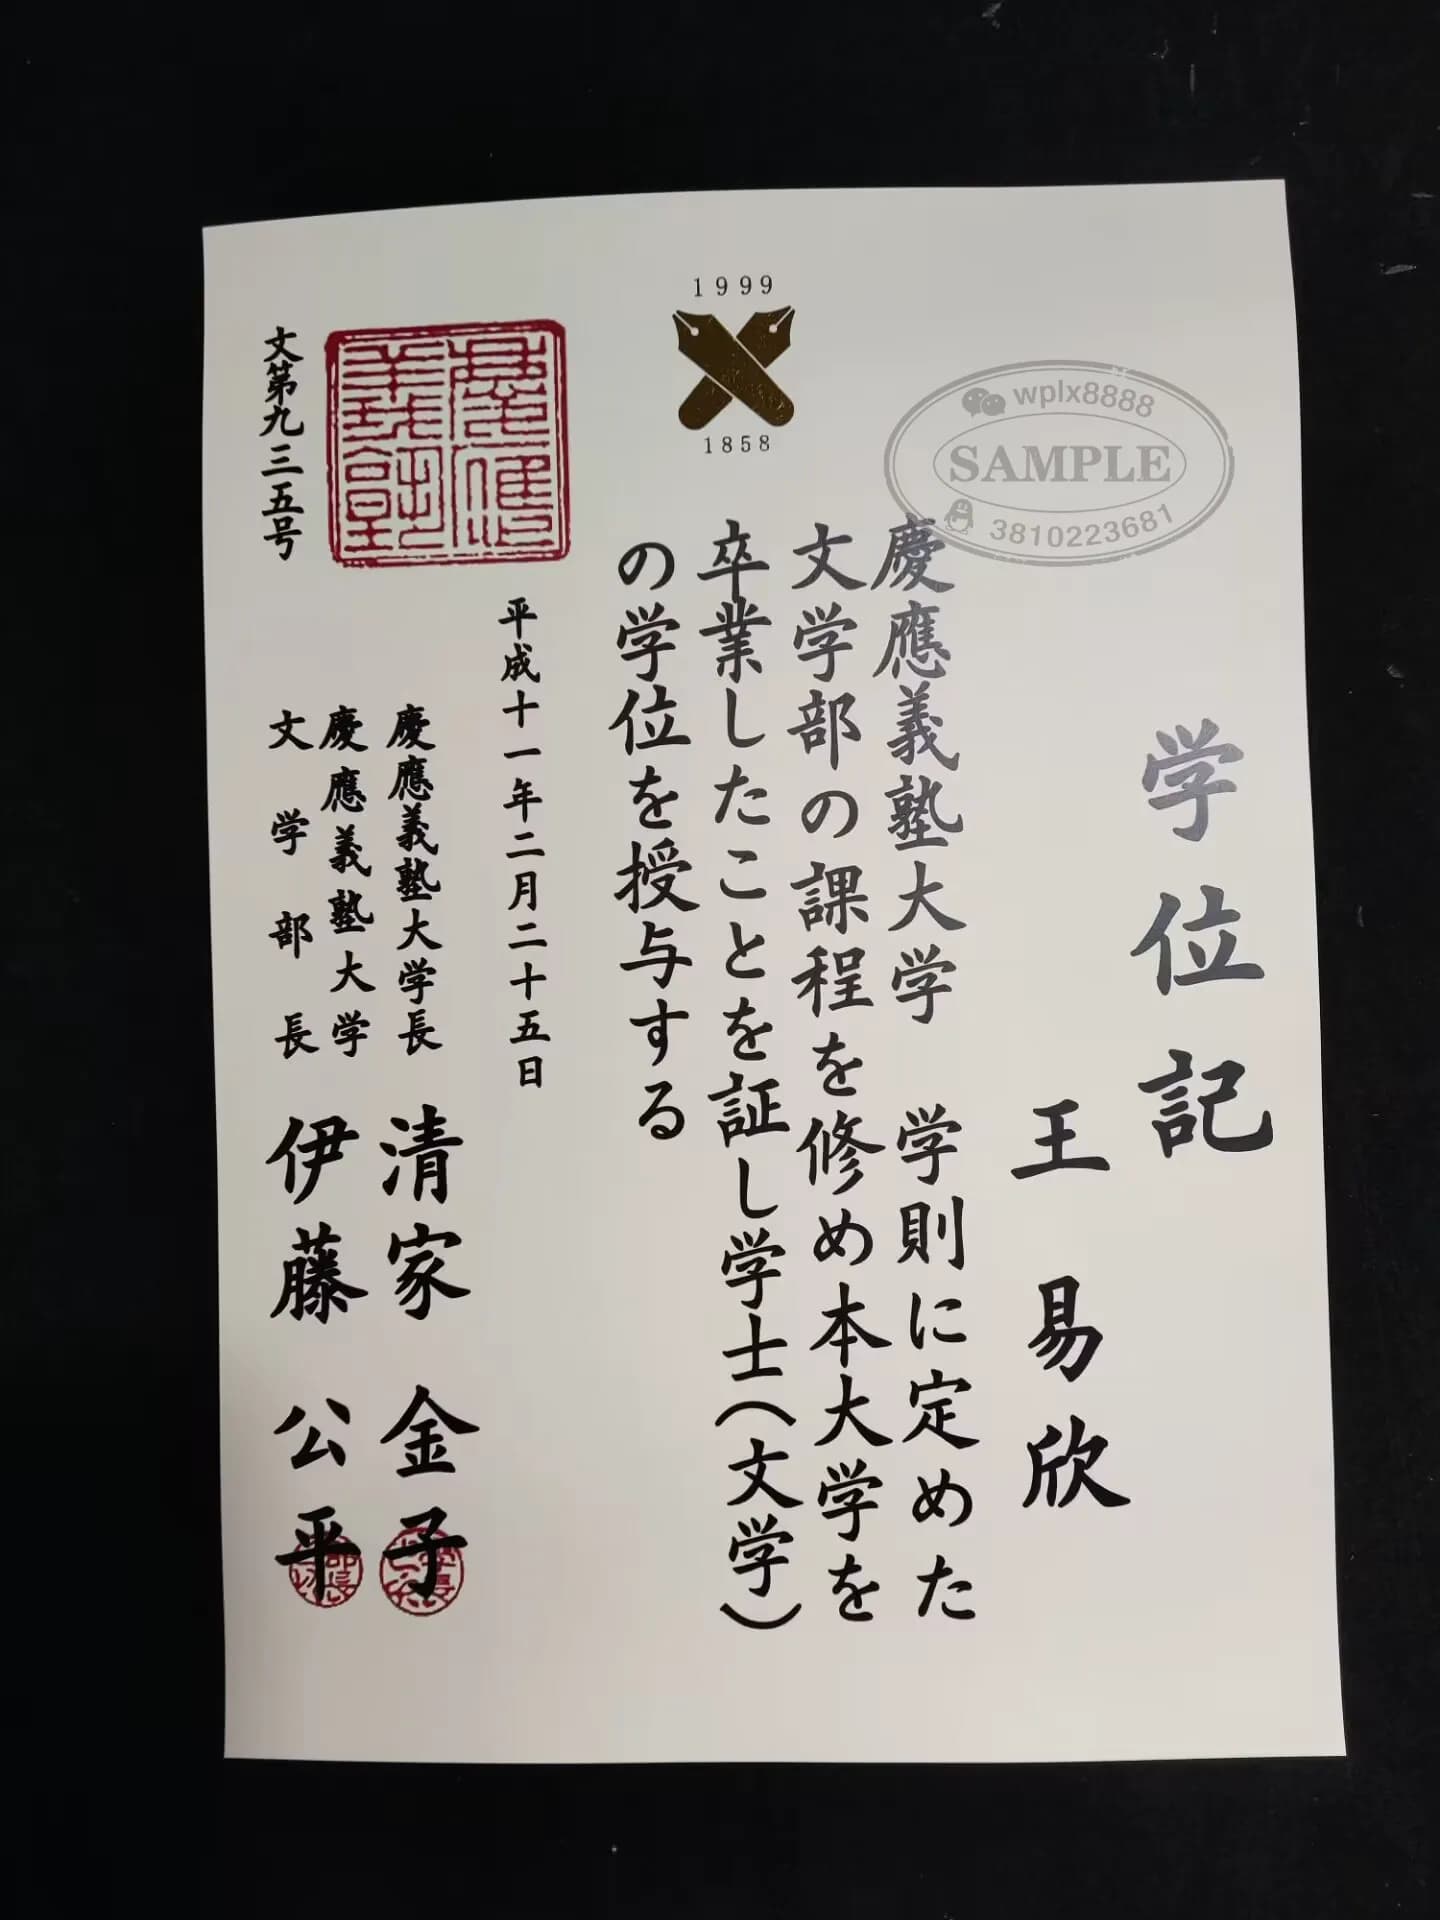 学位記
王易欣
慶應義塾大学 学則に定めた
文学部の課程を修め本大学を
卒業したことを証し学士(文学)
の学位を授与する
平成十一年二月二十五日
慶應義塾大学長 清家 金子
慶應義塾大学
文学部長 伊藤 公平
文第九三五号
慶應義塾
1999
1858
wplx8888
SAMPLE
3810223681